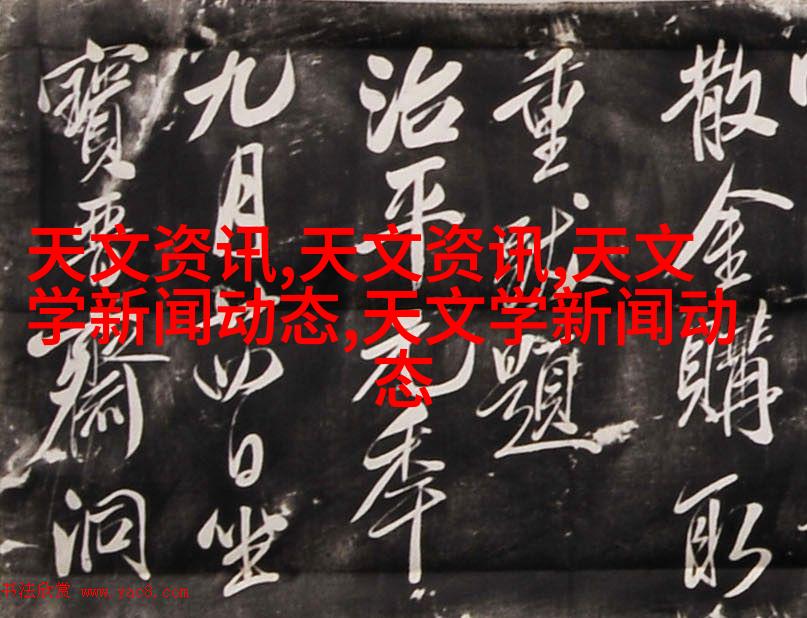 天文资讯,天文资讯,天文
学新闻动态,天文学新闻动
态
散金購取
重題
治平元年
九月四日坐
寶晋齋洞
书法欣赏 www.yac8.com